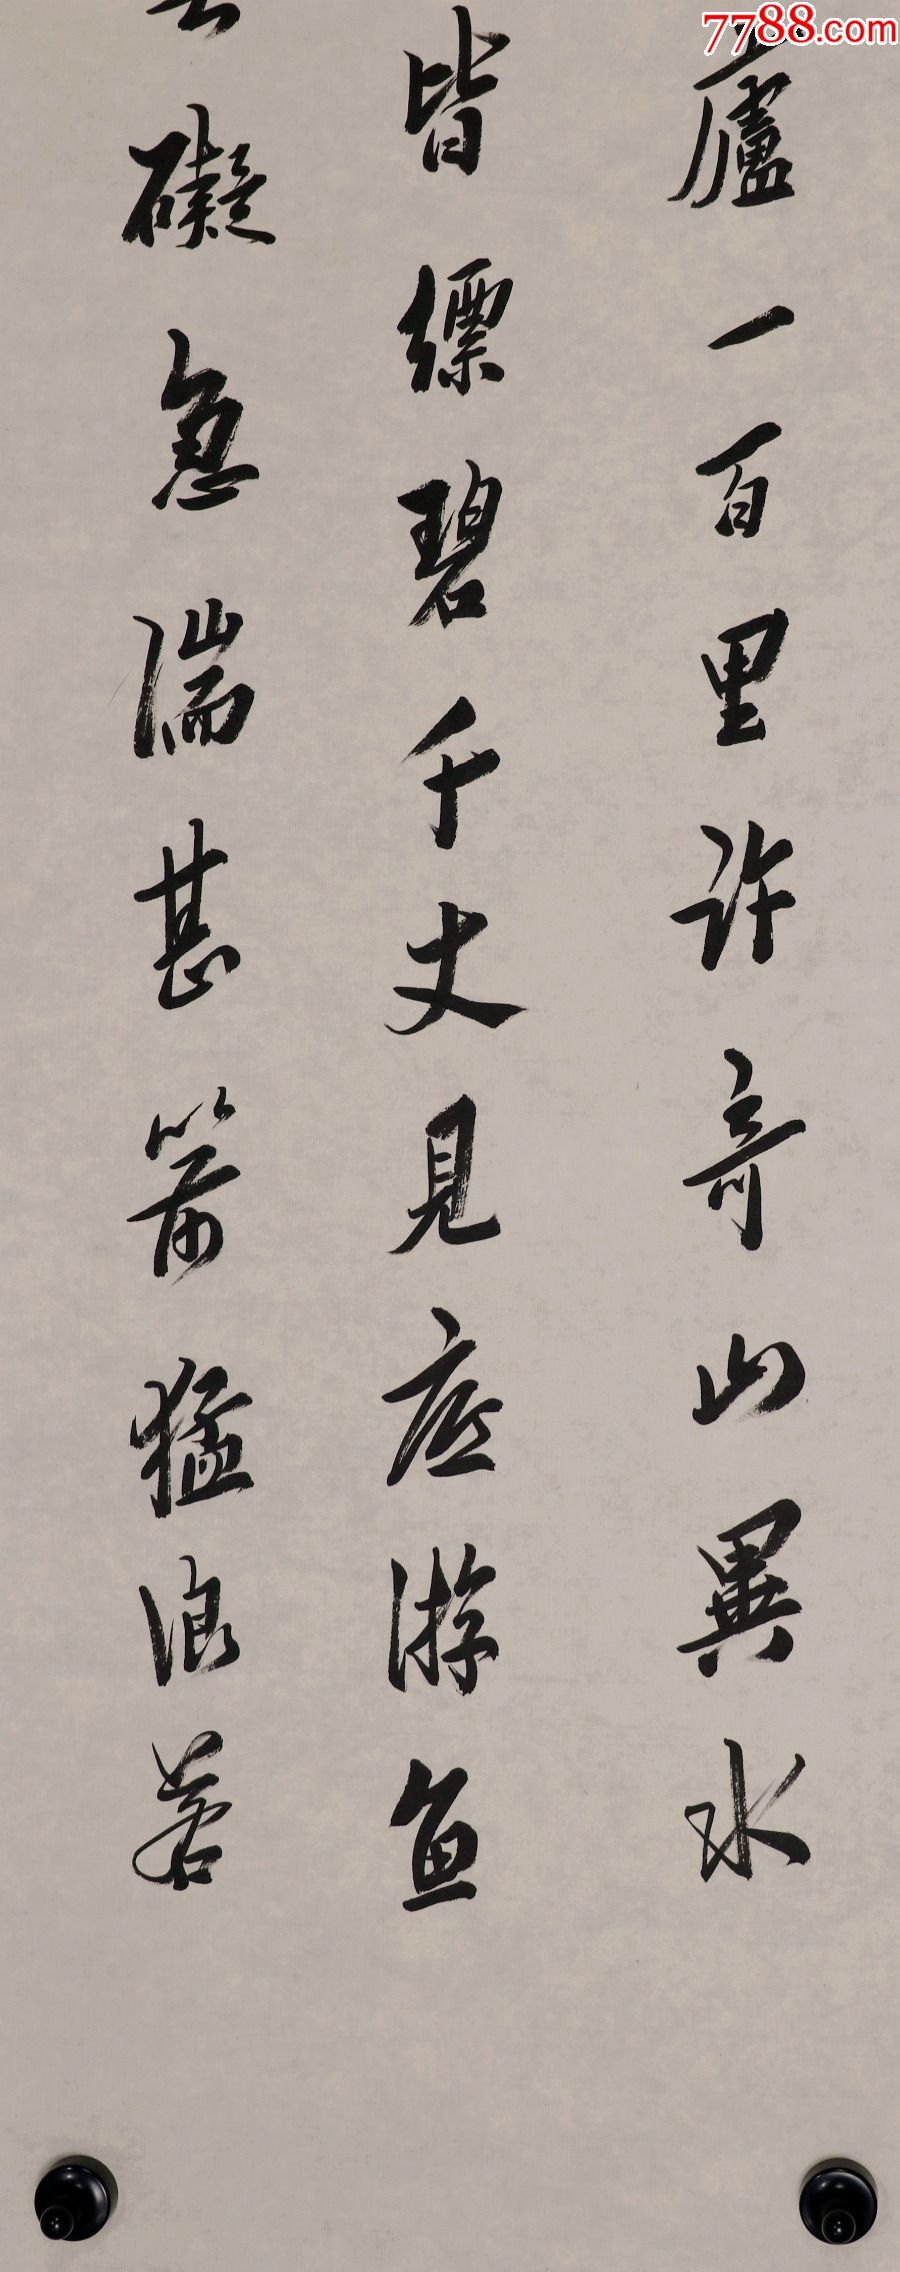 7788.com
廬一百里許奇山異水
皆縹碧千丈見底游魚
礙急湍甚箭猛浪若